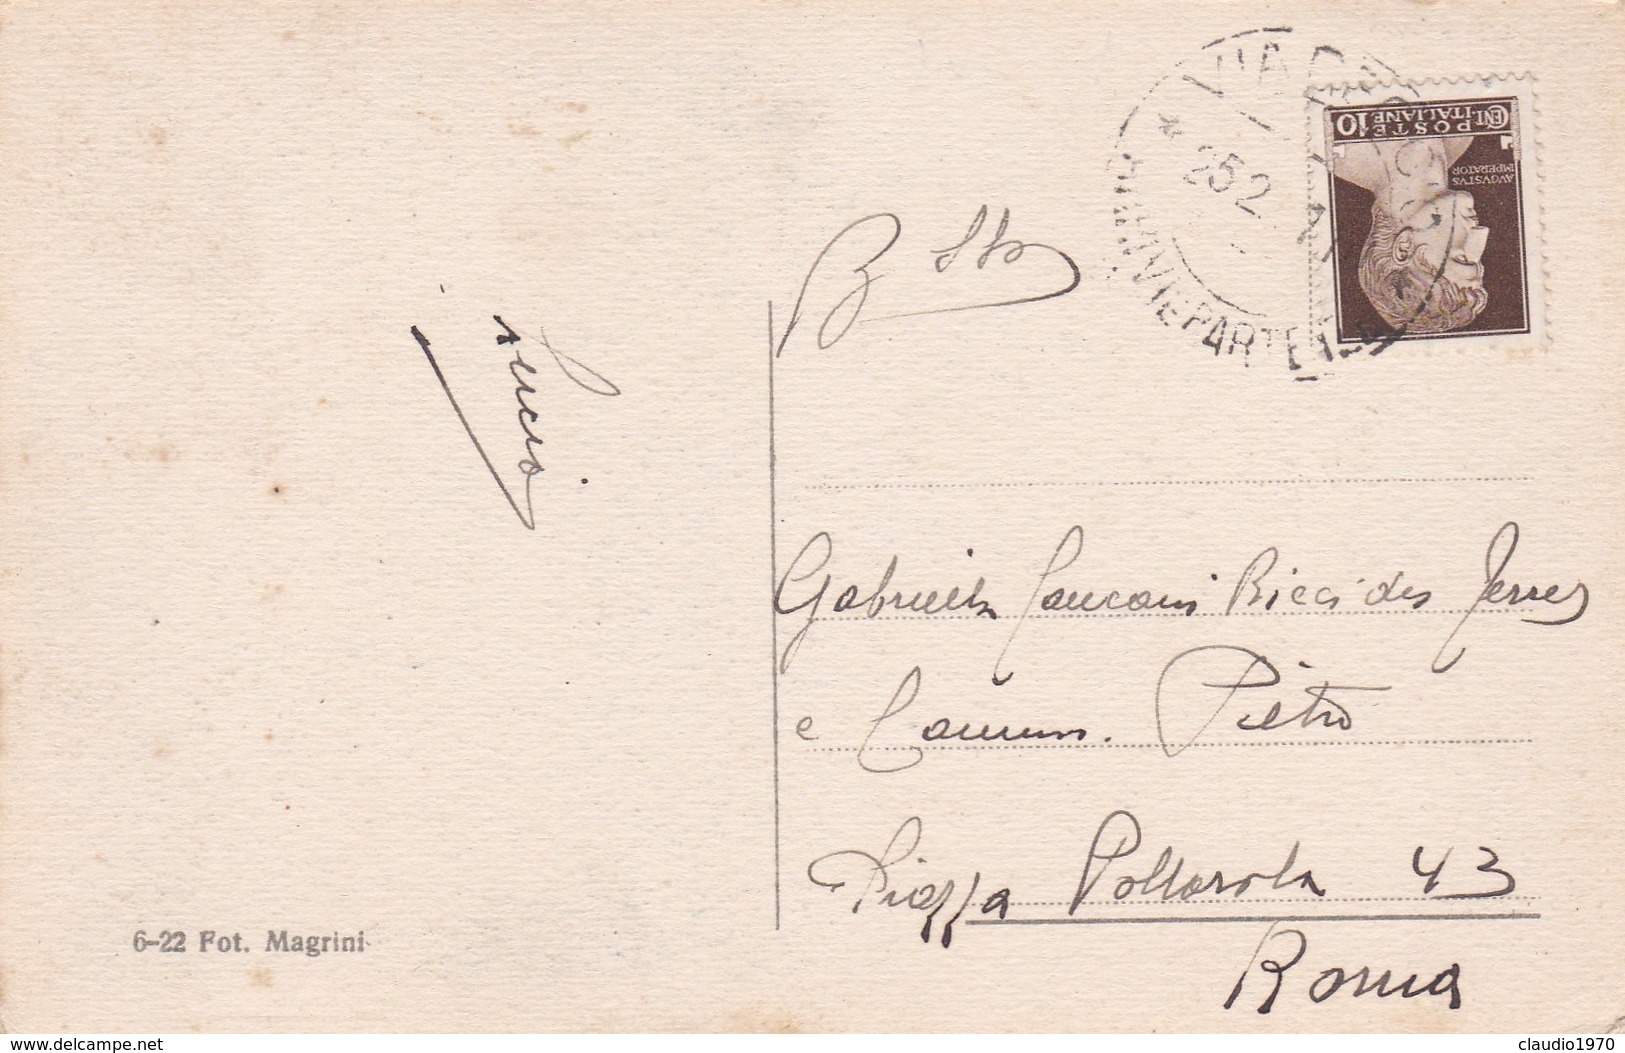 VIAREGGIO
25 2
ARRIVI E PARTENZE
CENT. POSTE ITALIANE 10
AVGVSTVS
IMPERATOR
Lucio
Gabriella Ricci des
e Pietro
Piazza Pollarola 43
Roma
6-22 Fot. Magrini
www.delcampe.net
claudio1970